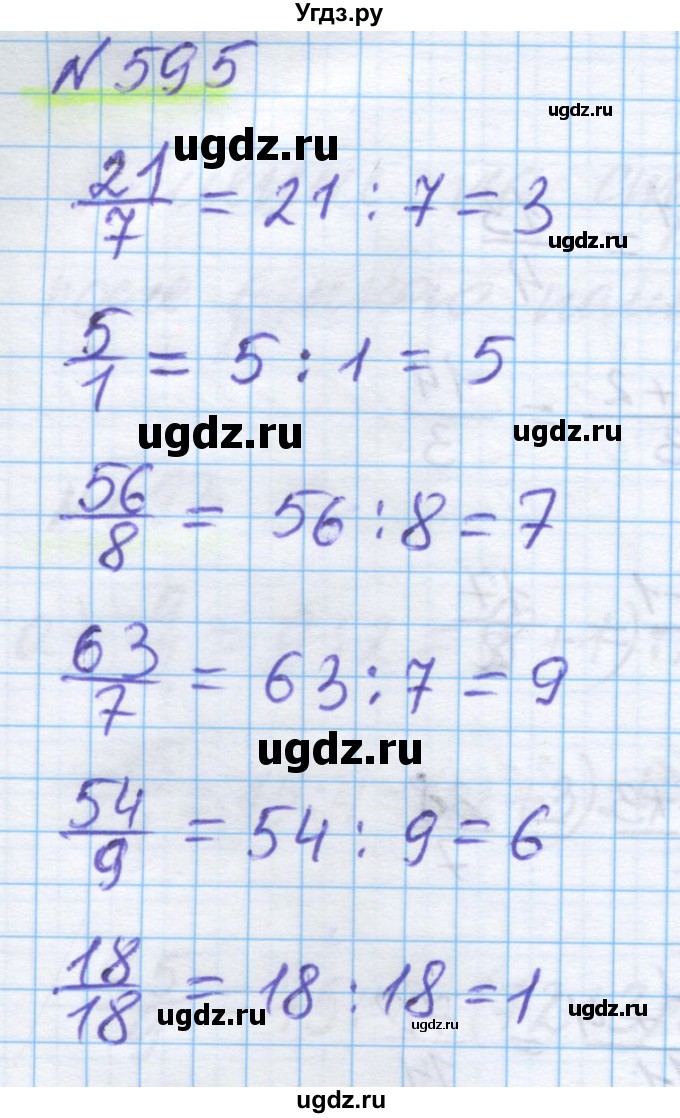 Угдз.ру
N 595
ugdz.ru
ugdz.ru
21/7 = 21 : 7 = 3
ugdz.ru
5/1 = 5 : 1 = 5
ugdz.ru
ugdz.ru
56/8 = 56 : 8 = 7
63/7 = 63 : 7 = 9
ugdz.ru
54/9 = 54 : 9 = 6
18/18 = 18 : 18 = 1
ugdz.ru
ugdz.ru
ugdz.ru
ugdz.ru